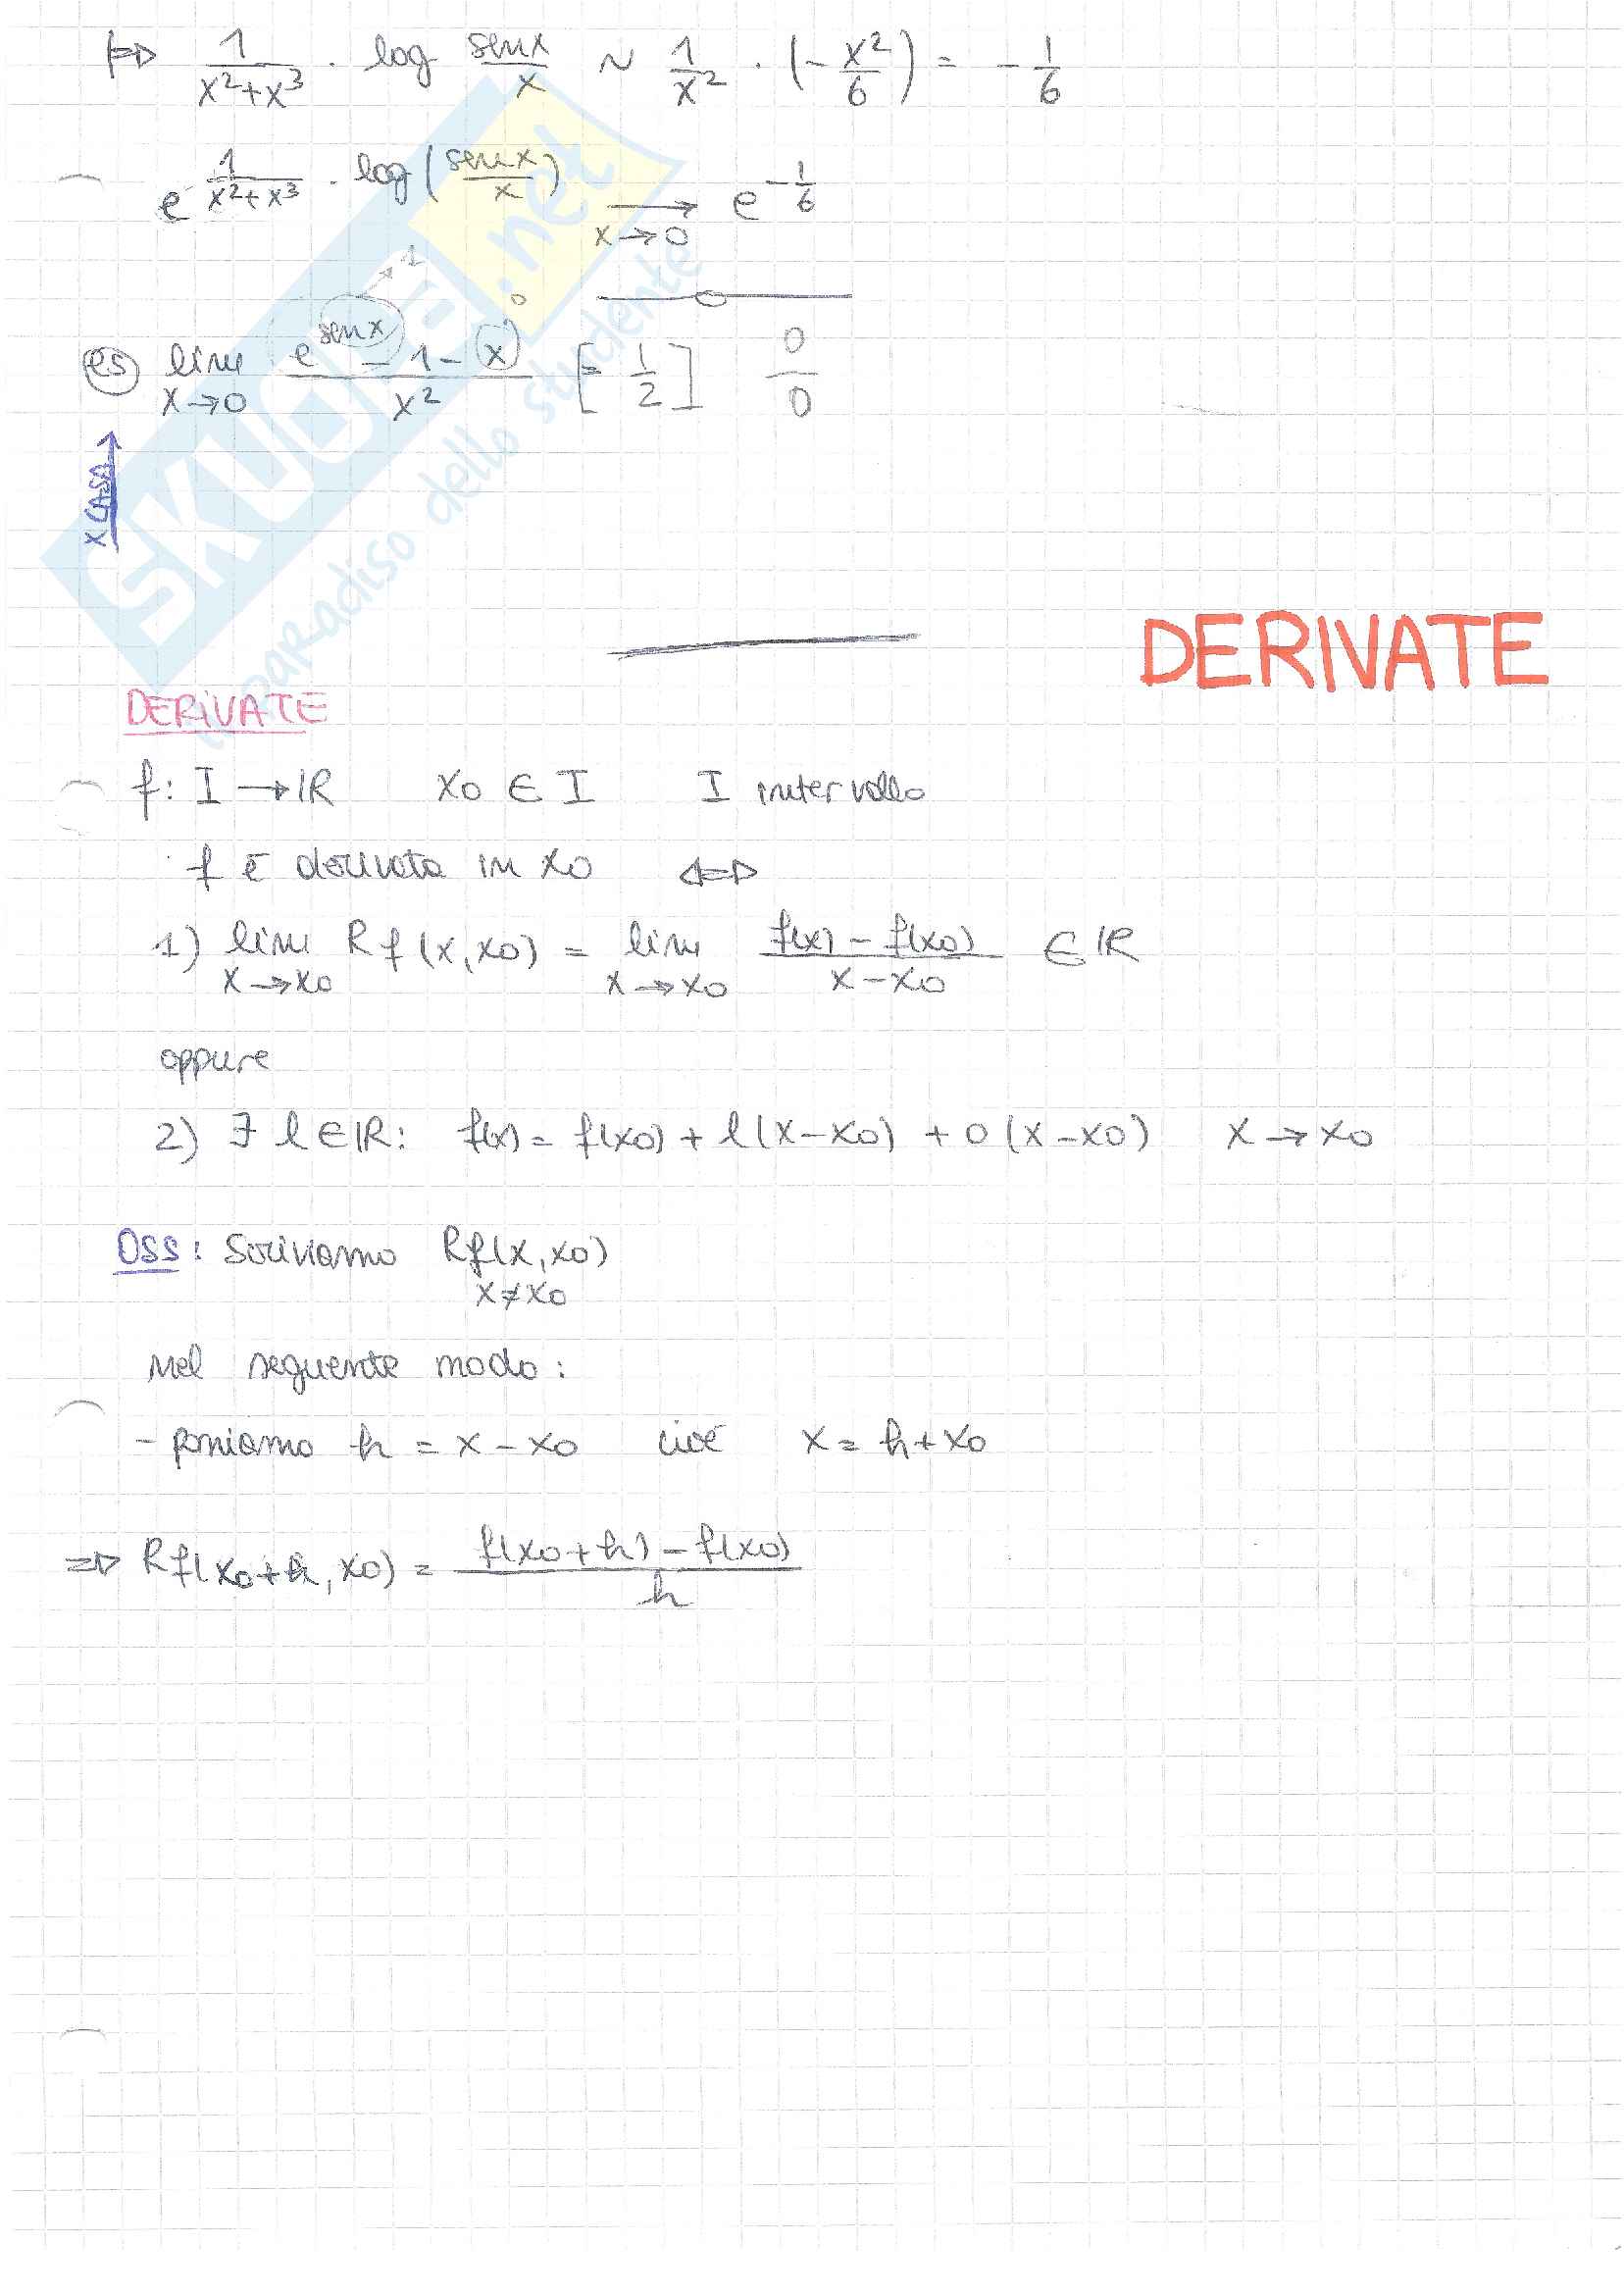 |⇒ 1/(x²+x³) · log senx/x ~ 1/x² · (-x²/6) = -1/6
e^(1/(x²+x³) · log(senx/x)) → e^(-1/6)
x→0
→1
0
es lim x→0 (e^senx - 1 - x)/x² [= 1/2] 0/0
x CASA
SKUOLA.net
il paradiso dello studente
DERIVATE
DERIVATE
f: I → ℝ x₀ ∈ I I intervallo
f è derivata in x₀ ⇔
1) lim x→x₀ Rf(x,x₀) = lim x→x₀ (f(x) - f(x₀))/(x-x₀) ∈ ℝ
oppure
2) ∃ l ∈ ℝ: f(x) = f(x₀) + l(x-x₀) + o(x-x₀) x→x₀
OSS: Scriviamo Rf(x,x₀)
x≠x₀
nel seguente modo:
- poniamo h = x-x₀ cioè x = h+x₀
⇒ Rf(x₀+h, x₀) = (f(x₀+h) - f(x₀))/h